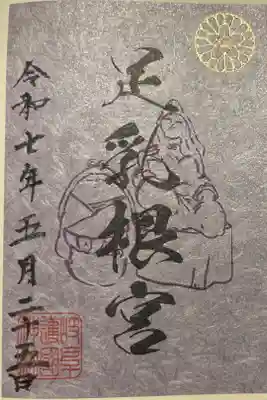 足乳根宮
令和七年五月二十五日